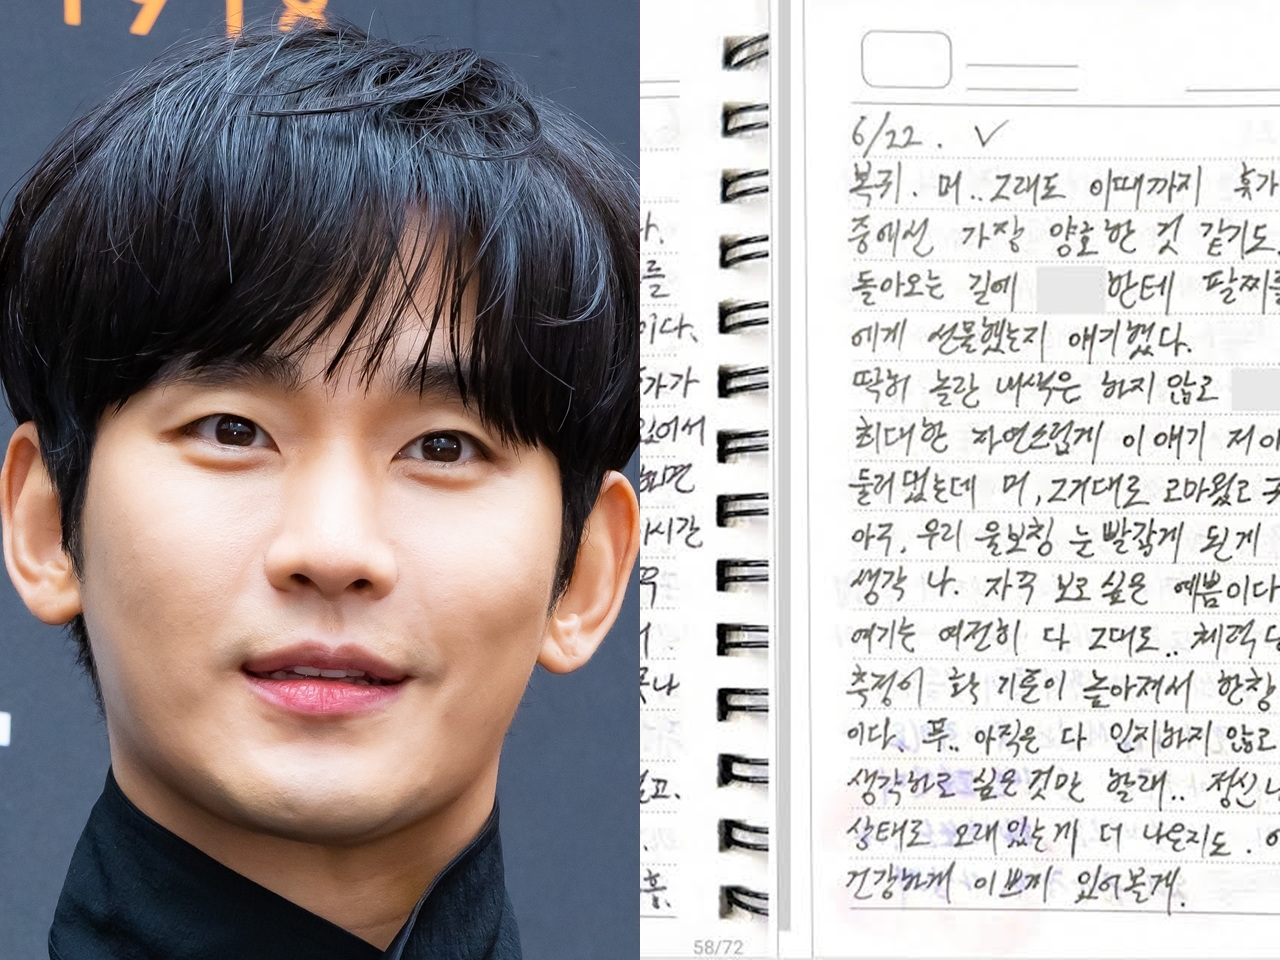 다.
를
이다.
가가
있어서
시간
고.
58/72
6/22. ✓
복귀. 머.. 그래도 이때까지 휴가
중에선 가장 양호한 것 같기도.
돌아오는 길에 한테 팔찌를
에게 선물했는지 얘기했다.
딱히 놀란 내색은 하지 않고
최대한 자연스럽게 이 얘기 저 이
둘러댔는데 머, 그거대로 고마웠고
아구, 우리 울보칭 눈 빨갛게 된게
생각 나. 자꾸 보고 싶은 예쁨이다
여기는 여전히 다 그대로.. 체력
측정이 확 기준이 높아져서 한창
이다. 푸.. 아직은 다 인지하지 않고
생각하고 싶은 것만 할래.. 정신
상태로 오래있는게 더 나은지도.
건강하게 이쁘게 있어볼게.